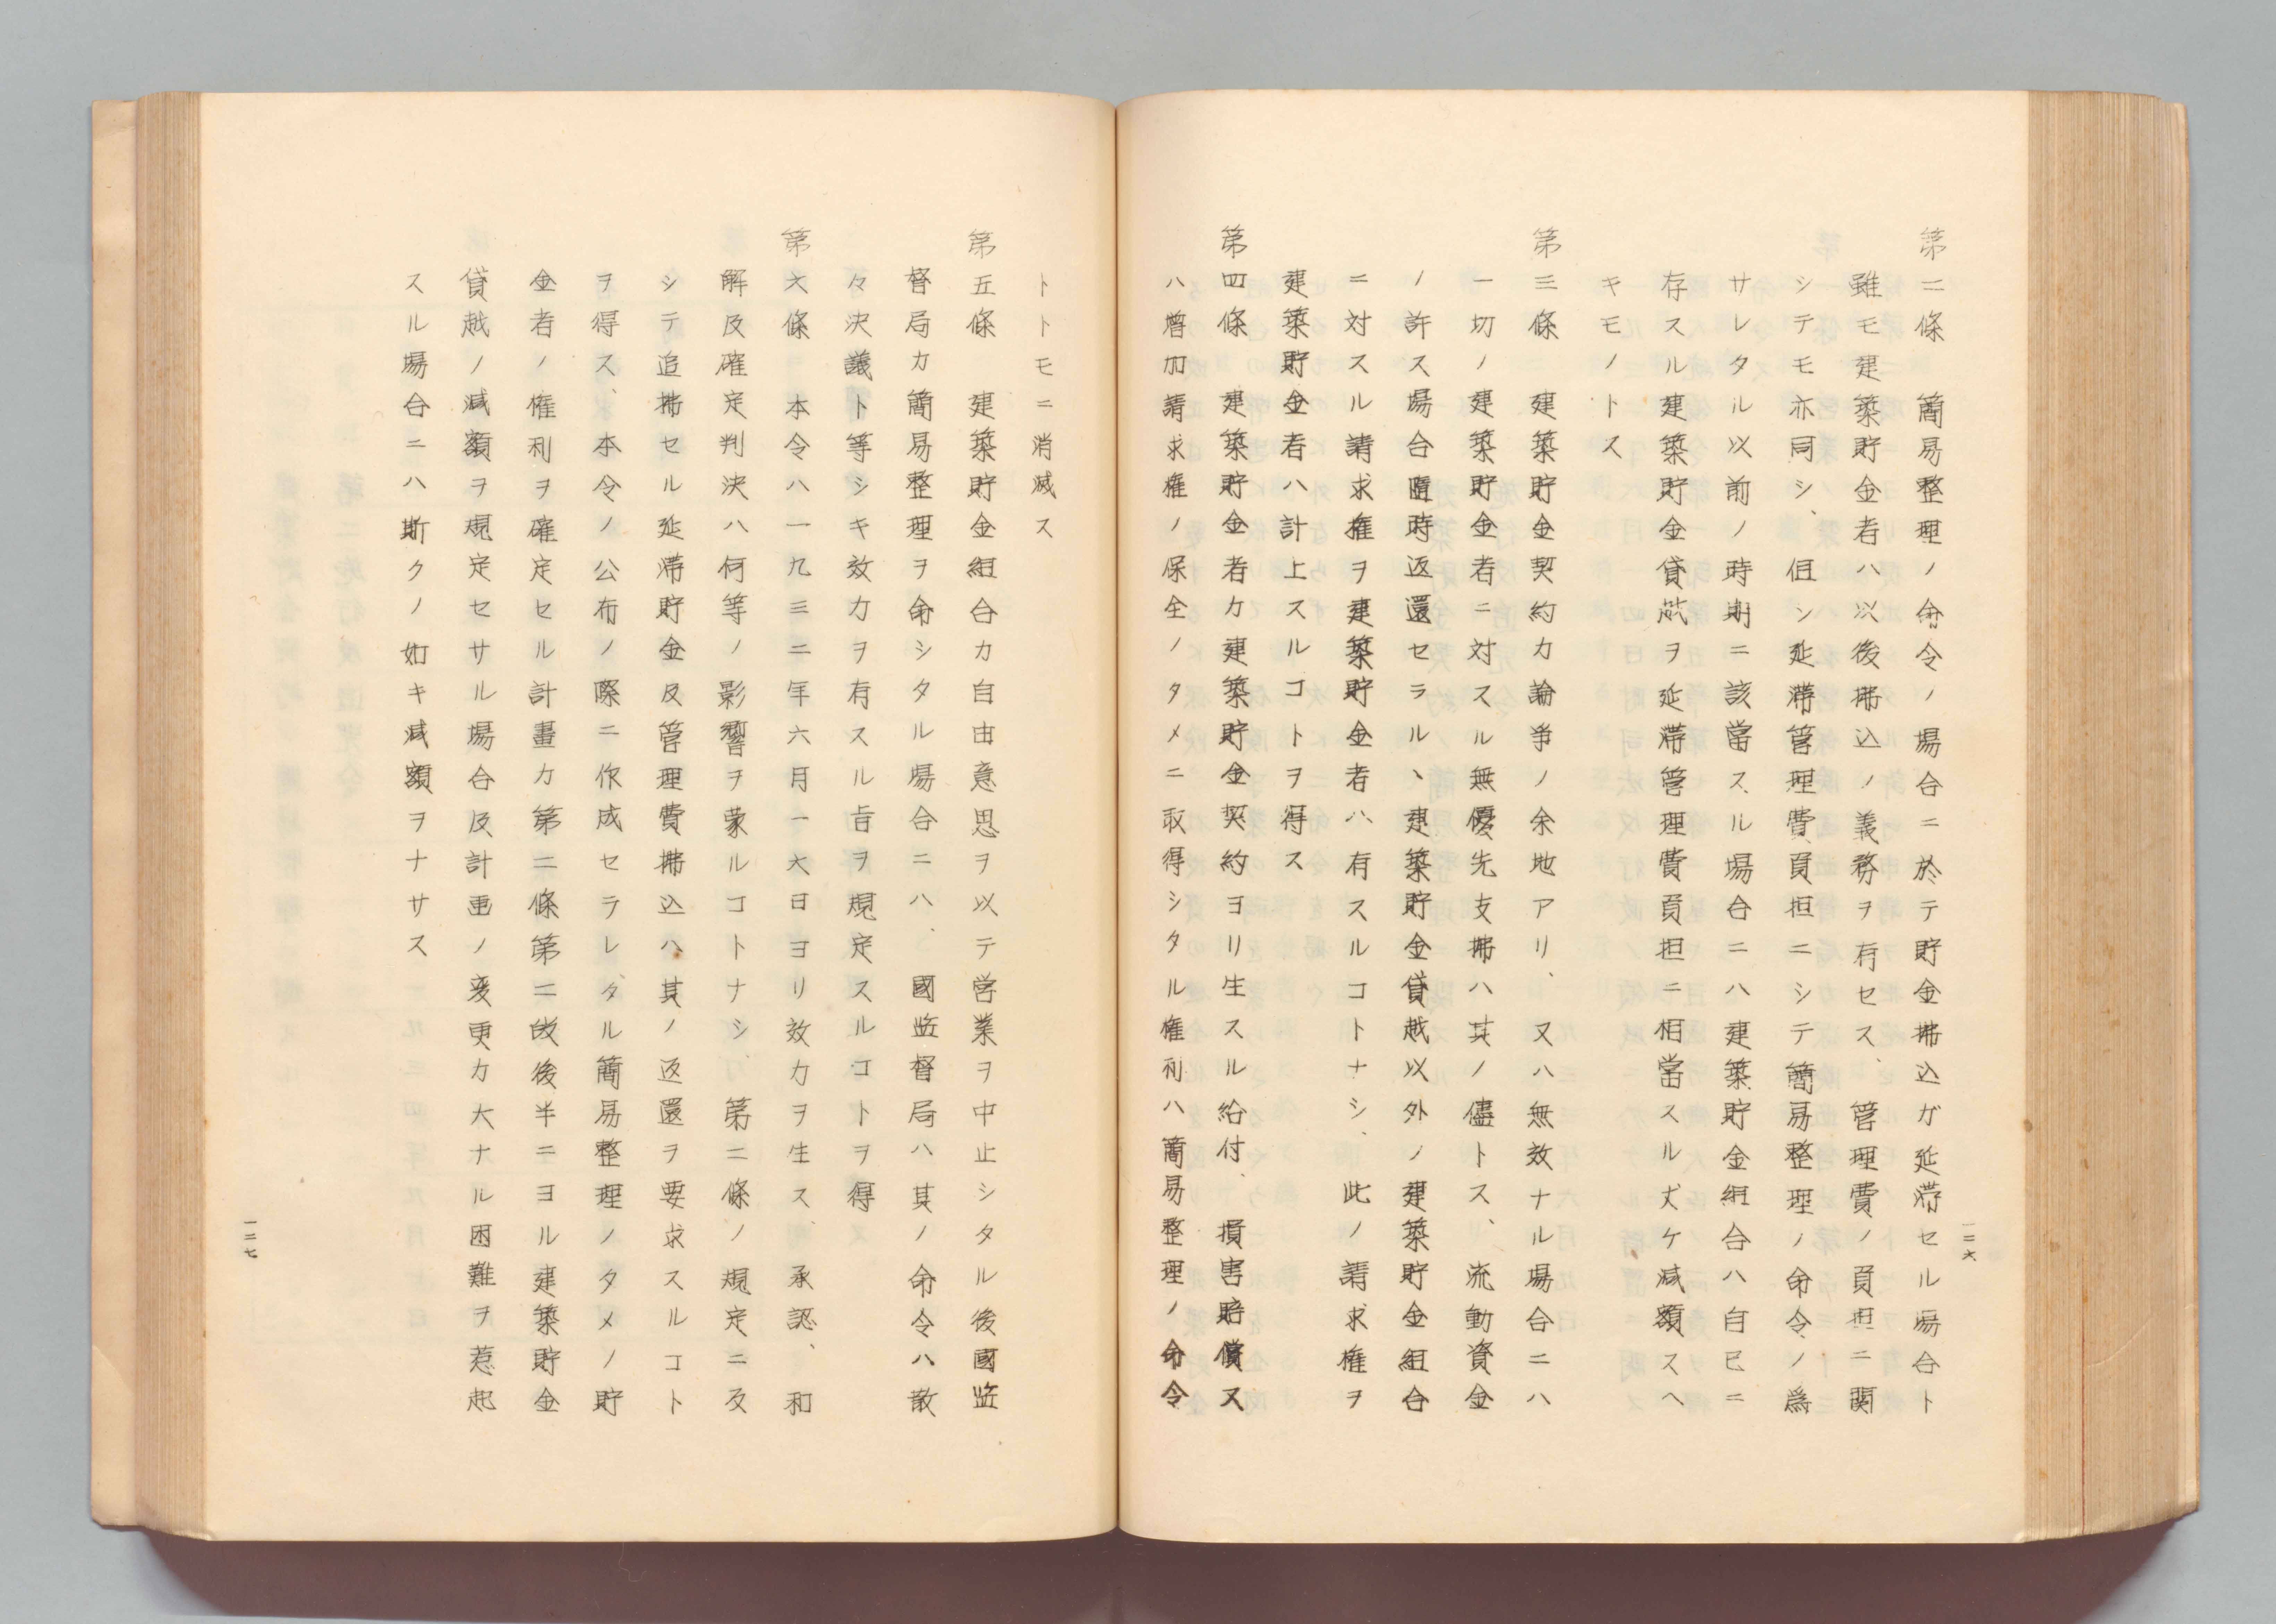 第二條　簡易整理ノ命令ノ場合ニ於テ貯金拂込ガ延滞セル場合ト
雖モ建築貯金者ハ以後拂込ノ義務ヲ有セス、管理費ノ負担ニ関
シテモ亦同シ、但シ延滞管理費負担ニシテ簡易整理ノ命令ノ為
サレタル以前ノ時期ニ該當スル場合ニハ建築貯金組合ハ自己ニ
存スル建築貯金貸越ヲ延滞管理費負担ニ相當スル丈ケ減額スヘ
キモノトス
第三條　建築貯金契約カ論争ノ余地アリ、又ハ無效ナル場合ニハ
一切ノ建築貯金者ニ対スル無優先支拂ハ其ノ儘トス、流動資金
ノ許ス場合隨時返還セラル、建築貯金貸越以外ノ建築貯金組合
ニ対スル請求権ヲ建築貯金者ハ有スルコトナシ、此ノ請求権ヲ
建築貯金者ハ計上スルコトヲ得ス
第四條　建築貯金者カ建築貯金契約ヨリ生スル給付、損害賠償又
ハ増加請求権ノ保全ノタメニ取得シタル権利ハ簡易整理ノ命令
一二六
トトモニ消滅ス
第五條　建築貯金組合カ自由意思ヲ以テ営業ヲ中止シタル後國監
督局カ簡易整理ヲ命シタル場合ニハ、國監督局ハ其ノ命令ハ散
々決議ト等シキ效力ヲ有スル旨ヲ規定スルコトヲ得
第六條　本令ハ一九三二年六月一六日ヨリ效力ヲ生ス、承認、和
解及確定判決ハ何等ノ影響ヲ蒙ルコトナシ、第二條ノ規定ニ反
シテ追拂セル延滞貯金及管理費拂込ハ其ノ返還ヲ要求スルコト
ヲ得ス、本令ノ公布ノ際ニ作成セラレタル簡易整理ノタメノ貯
金者ノ権利ヲ確定セル計畫カ第二條第二段後半ニヨル建築貯金
貸越ノ減額ヲ規定セサル場合及計画ノ変更カ大ナル困難ヲ惹起
スル場合ニハ斯クノ如キ減額ヲナサス
一二七